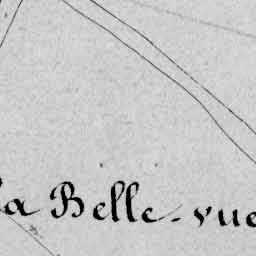 la Belle-vue